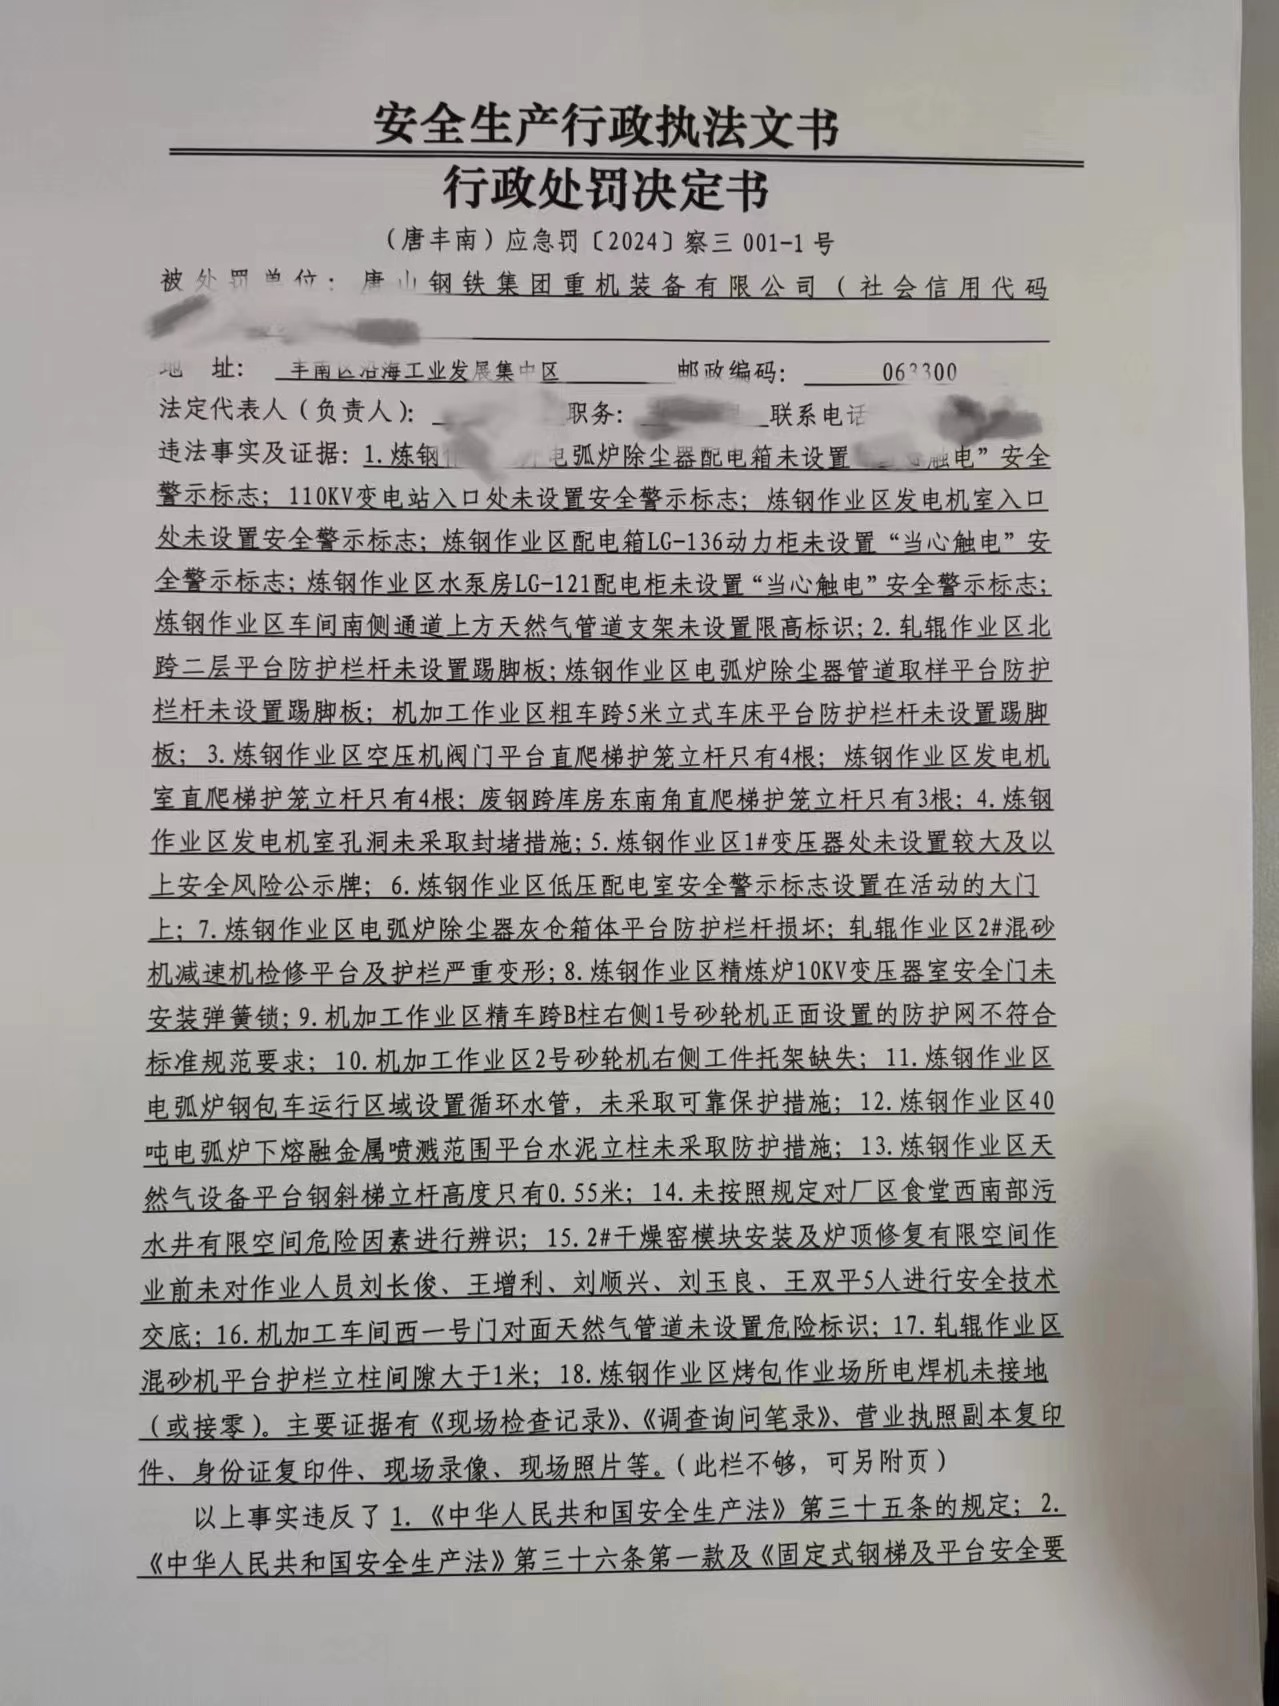 安全生产行政执法文书
行政处罚决定书
（唐丰南）应急罚〔2024〕察三 001-1 号
被处罚单位：唐山钢铁集团重机装备有限公司（社会信用代码
地 址： 丰南区沿海工业发展集中区 邮政编码： 063300
法定代表人（负责人）： 职务： 联系电话
违法事实及证据：1.炼钢 电弧炉除尘器配电箱未设置 触电”安全
警示标志；110KV变电站入口处未设置安全警示标志；炼钢作业区发电机室入口
处未设置安全警示标志；炼钢作业区配电箱LG-136动力柜未设置“当心触电”安
全警示标志；炼钢作业区水泵房LG-121配电柜未设置“当心触电”安全警示标志；
炼钢作业区车间南侧通道上方天然气管道支架未设置限高标识；2.轧辊作业区北
跨二层平台防护栏杆未设置踢脚板；炼钢作业区电弧炉除尘器管道取样平台防护
栏杆未设置踢脚板；机加工作业区粗车跨5米立式车床平台防护栏杆未设置踢脚
板；3.炼钢作业区空压机阀门平台直爬梯护笼立杆只有4根；炼钢作业区发电机
室直爬梯护笼立杆只有4根；废钢跨库房东南角直爬梯护笼立杆只有3根；4.炼钢
作业区发电机室孔洞未采取封堵措施；5.炼钢作业区1#变压器处未设置较大及以
上安全风险公示牌；6.炼钢作业区低压配电室安全警示标志设置在活动的大门
上；7.炼钢作业区电弧炉除尘器灰仓箱体平台防护栏杆损坏；轧辊作业区2#混砂
机减速机检修平台及护栏严重变形；8.炼钢作业区精炼炉10KV变压器室安全门未
安装弹簧锁；9.机加工作业区精车跨B柱右侧1号砂轮机正面设置的防护网不符合
标准规范要求；10.机加工作业区2号砂轮机右侧工件托架缺失；11.炼钢作业区
电弧炉钢包车运行区域设置循环水管，未采取可靠保护措施；12.炼钢作业区40
吨电弧炉下熔融金属喷溅范围平台水泥立柱未采取防护措施；13.炼钢作业区天
然气设备平台钢斜梯立杆高度只有0.55米；14.未按照规定对厂区食堂西南部污
水井有限空间危险因素进行辨识；15.2#干燥窑模块安装及炉顶修复有限空间作
业前未对作业人员刘长俊、王增利、刘顺兴、刘玉良、王双平5人进行安全技术
交底；16.机加工车间西一号门对面天然气管道未设置危险标识；17.轧辊作业区
混砂机平台护栏立柱间隙大于1米；18.炼钢作业区烤包作业场所电焊机未接地
（或接零）。主要证据有《现场检查记录》、《调查询问笔录》、营业执照副本复印
件、身份证复印件、现场录像、现场照片等。（此栏不够，可另附页）
以上事实违反了 1.《中华人民共和国安全生产法》第三十五条的规定；2.
《中华人民共和国安全生产法》第三十六条第一款及《固定式钢梯及平台安全要